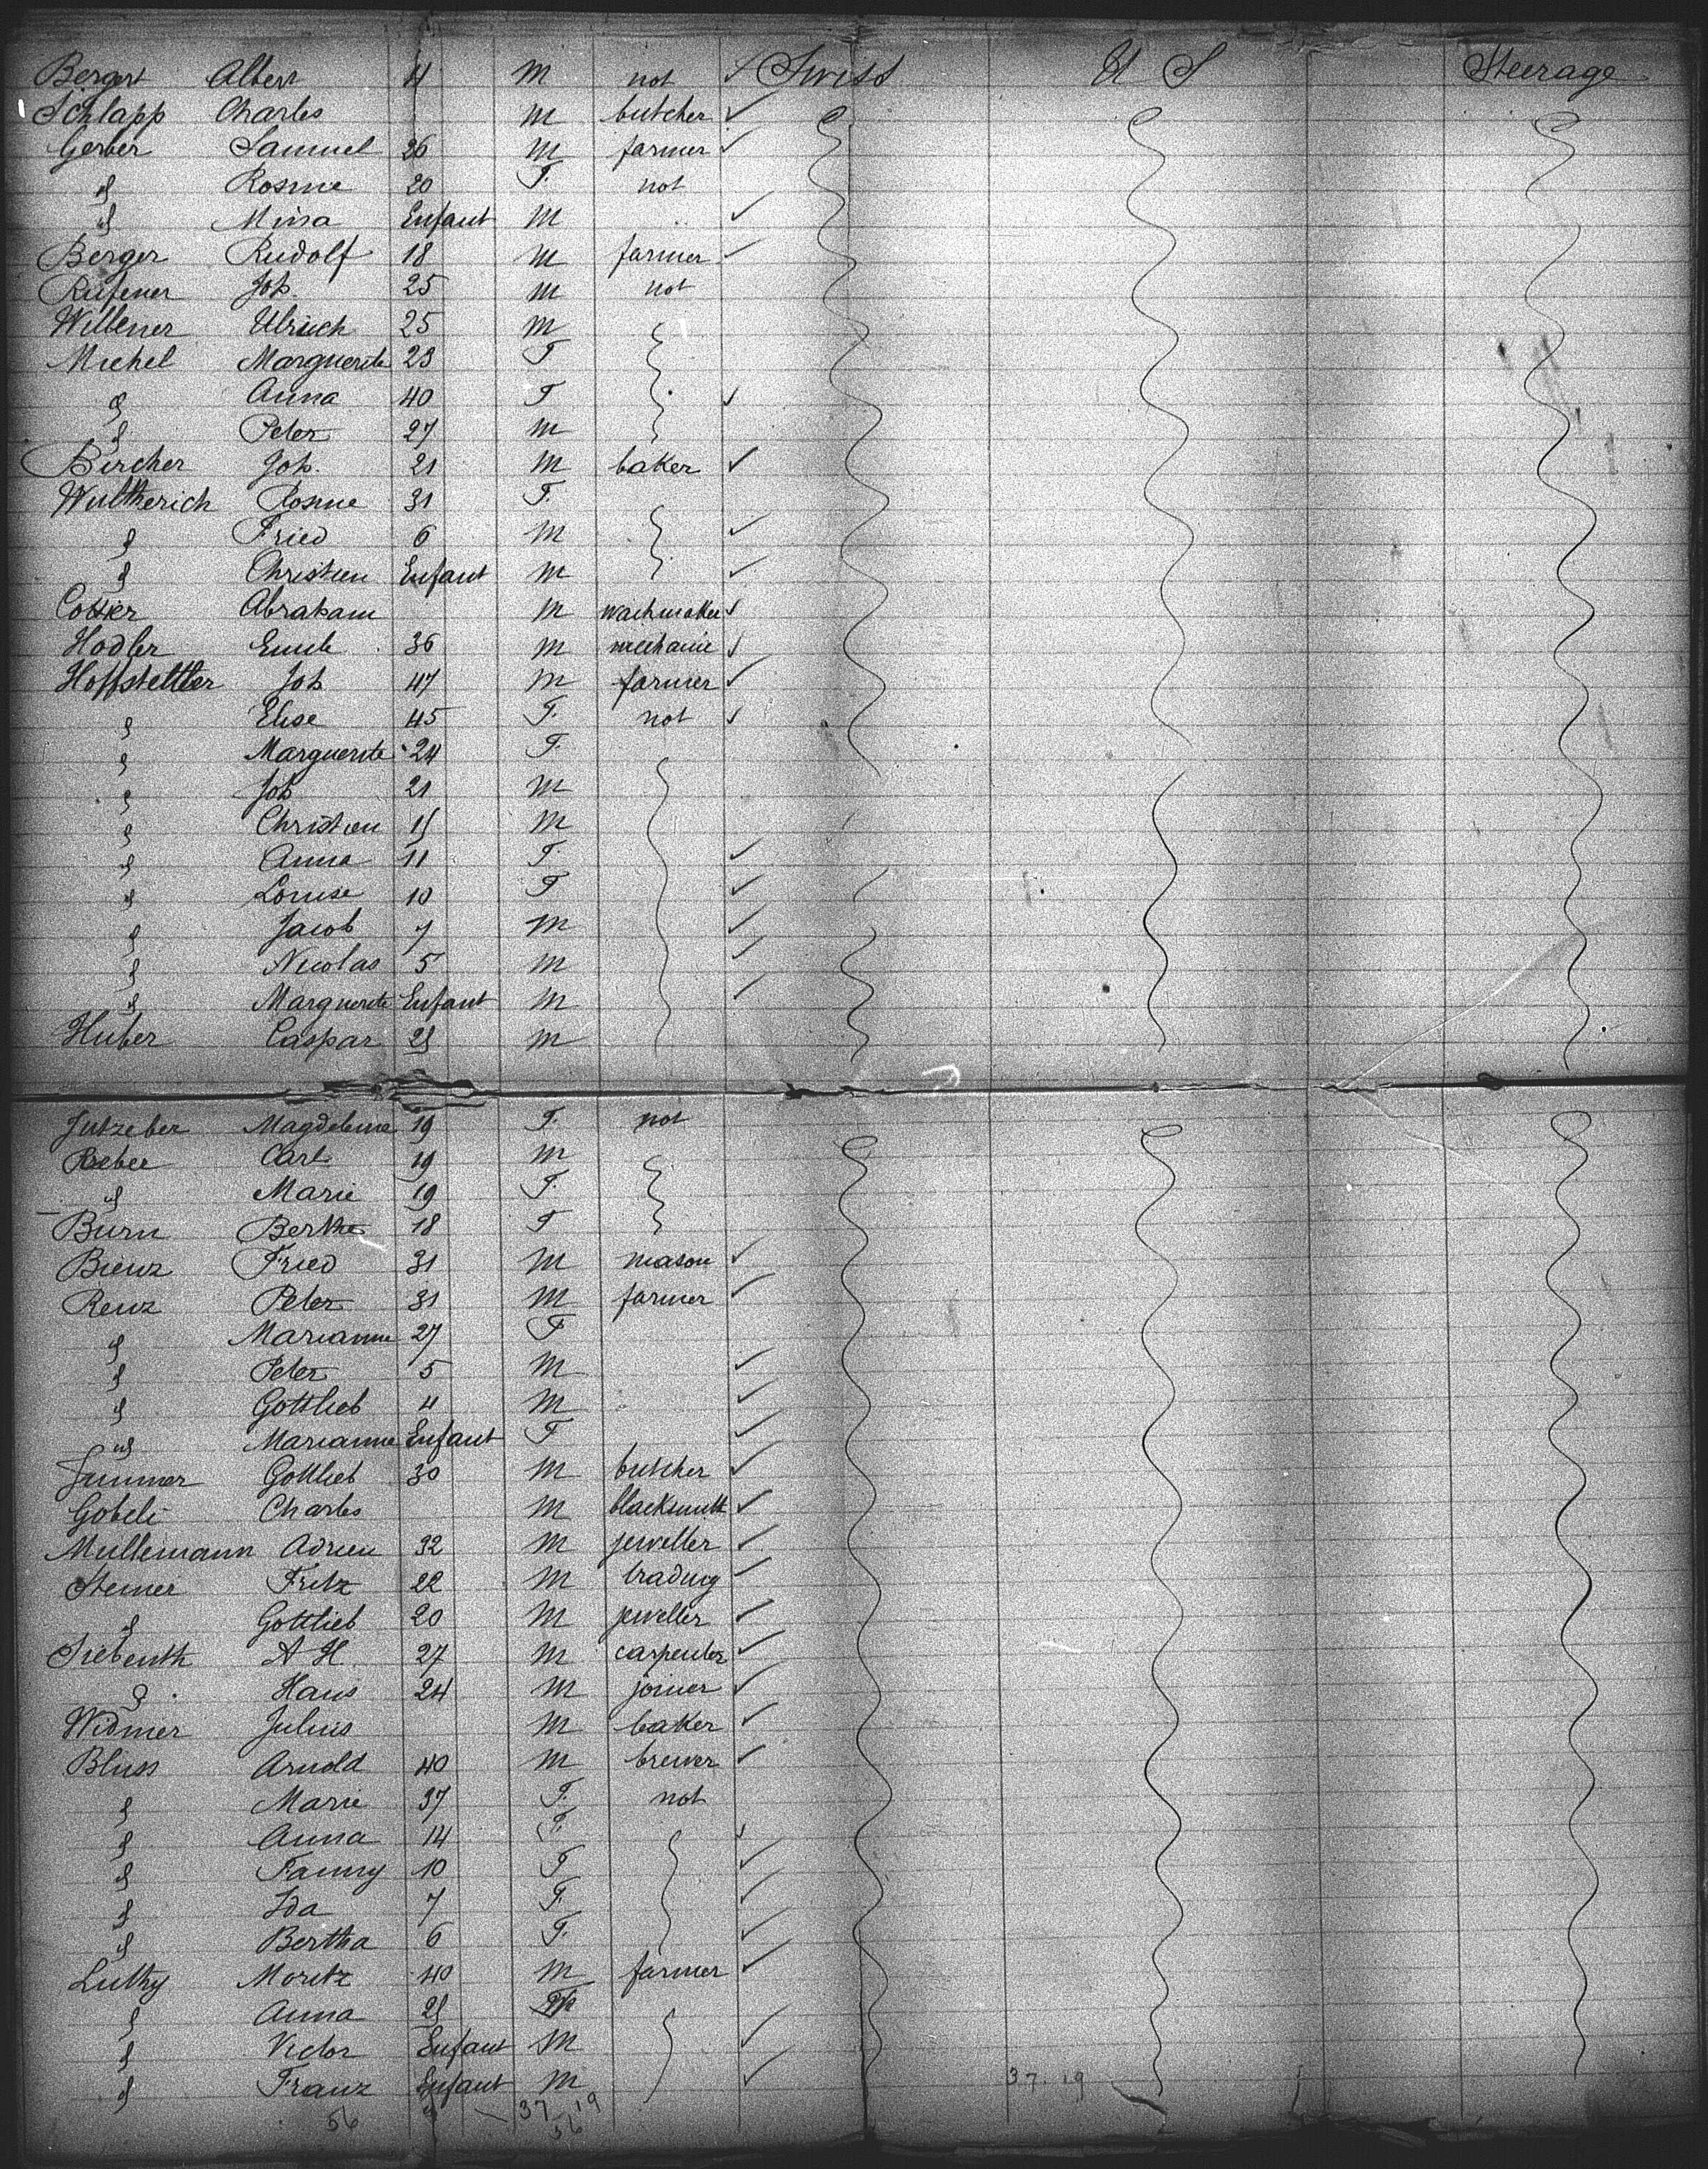 Bergert Albert 4 M not Swiss U S Steerage
Schlapp Charles M butcher
Gerber Samuel 26 M farmer
" Rosine 20 F. not
" Mina Enfant M "
Berger Rudolf 18 M farmer
Rufener Joh. 25 M not
Willener Ulrich 25 M
Michel Marguerite 23 F
" Anna 40 F
" Peter 27 M
Bircher Joh. 21 M baker
Wultherich Rosine 31 F.
" Fried 6 M
" Christien Enfant M
Abraham M wachmaker
Hodler Emile 36 M mechanic
Hoffstettler Joh 47 M farmer
" Elise 45 F. not
" Marguerite 24 F.
" Joh 21 M
" Christien M
" Anna 11 F.
" Louise 10 F
" Jacob 7 M
" Nicolas 5 M
" Marguerite Enfant M
Huber Caspar M
Jutzeler Magdeleine 19 F. not
Carl 19 M
" Marie 19 F.
Burn Berthe 18 F
Bienz Fried 31 M mason
Renz Peter 31 M farmer
" Marianne 27 F
" Peter 5 M
" Gottlieb 4 M
" Marianne Enfant F
Jummer Gottlieb 30 M butcher
Gobeli Charles M blacksmith
Mullemann Adrien 32 M jeweller
Steiner Fritz 22 M trading
" Gottlieb 20 M jeweller
Siebenth A H. 27 M carpenter
" Hans 24 M joiner
Widmer Julius M baker
Bluss Arnold 40 M brewer
" Marie 37 F. not
" Anna 14 F.
" Fanny 10 F
" Ida 7 F.
" Bertha 6 F.
Luthy Moritz 40 M farmer
" Anna
" Victor Enfant M
" Franz Enfant M
37. 19
37 19
56 56